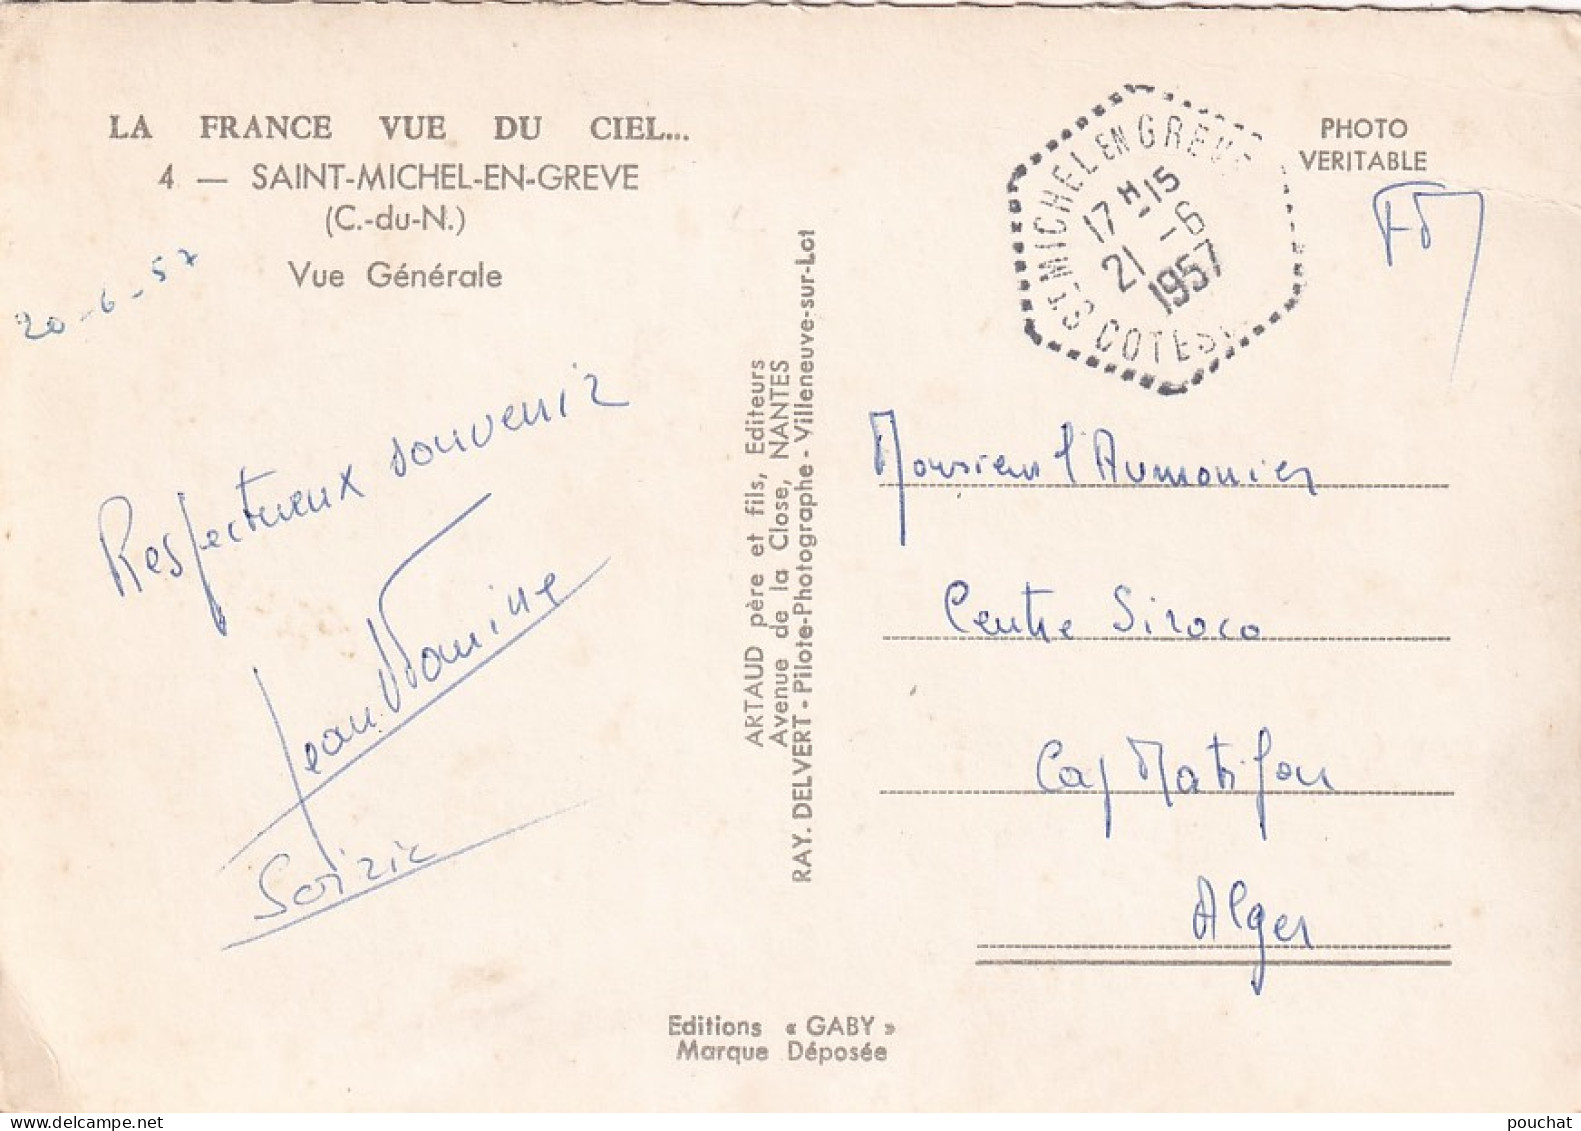 LA FRANCE VUE DU CIEL...
4 — SAINT-MICHEL-EN-GREVE
(C.-du-N.)
Vue Générale
20-6-57
Respectueux souvenir
Jean
ARTAUD père et fils, Editeurs
Avenue de la Close, NANTES
RAY. DELVERT - Pilote-Photographe - Villeneuve-sur-Lot
ST-MICHEL EN GREVE
17H-15
21-6
1957
COTES
PHOTO
VERITABLE
Monsieur l'Aumonier
Centre Siroco
Cap Matifou
Alger
Editions « GABY »
Marque Déposée
pouchat